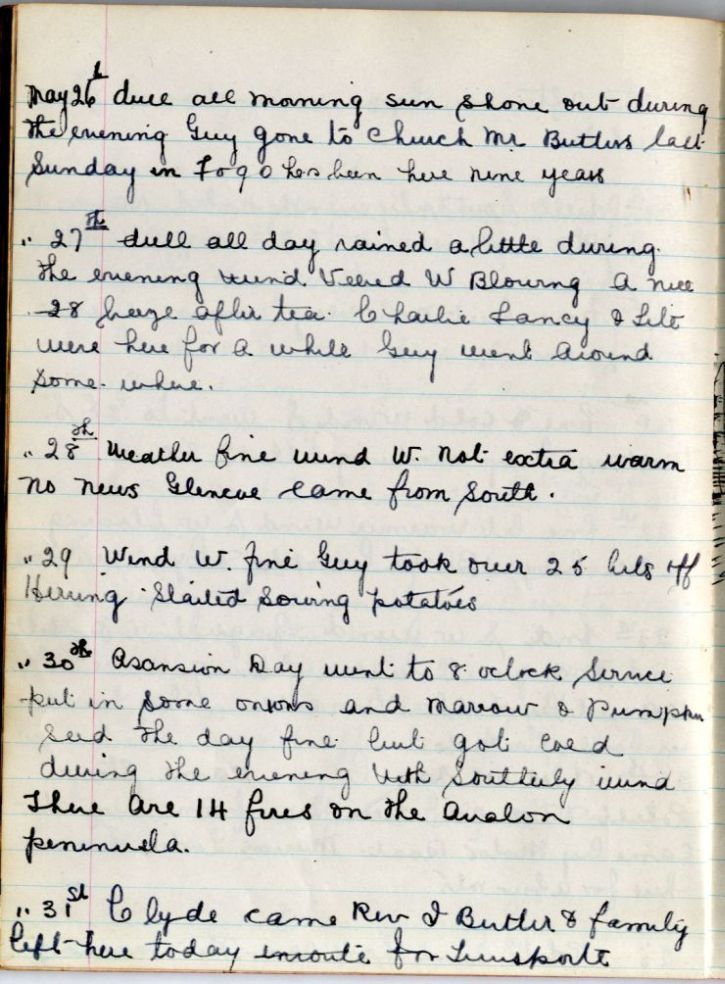 May 26th dull all morning sun shone out during
the evening Guy gone to Church Mr Butlers last
Sunday in Fogo has been here nine years
" 27th dull all day rained a little during
the evening wind Veered W Blowing a nice
28 breeze after tea. Charlie Lancy &
were here for a while Guy went around
some. where.
" 28th Weather fine wind W. not extra warm
no news Glencoe came from South.
" 29 Wind W. fine Guy took over 25 bls off
Herring Started Sowing potatoes
" 30th Asansion Day went to 8 oclock Service
put in some onions and marrow & Pumpkin
seed the day fine but got cold
during the evening with Southerly wind
There are 14 fires on the Avalon
peninusla.
" 31st Clyde came Rev I Butler & family
left here today enroute for Lewisporte